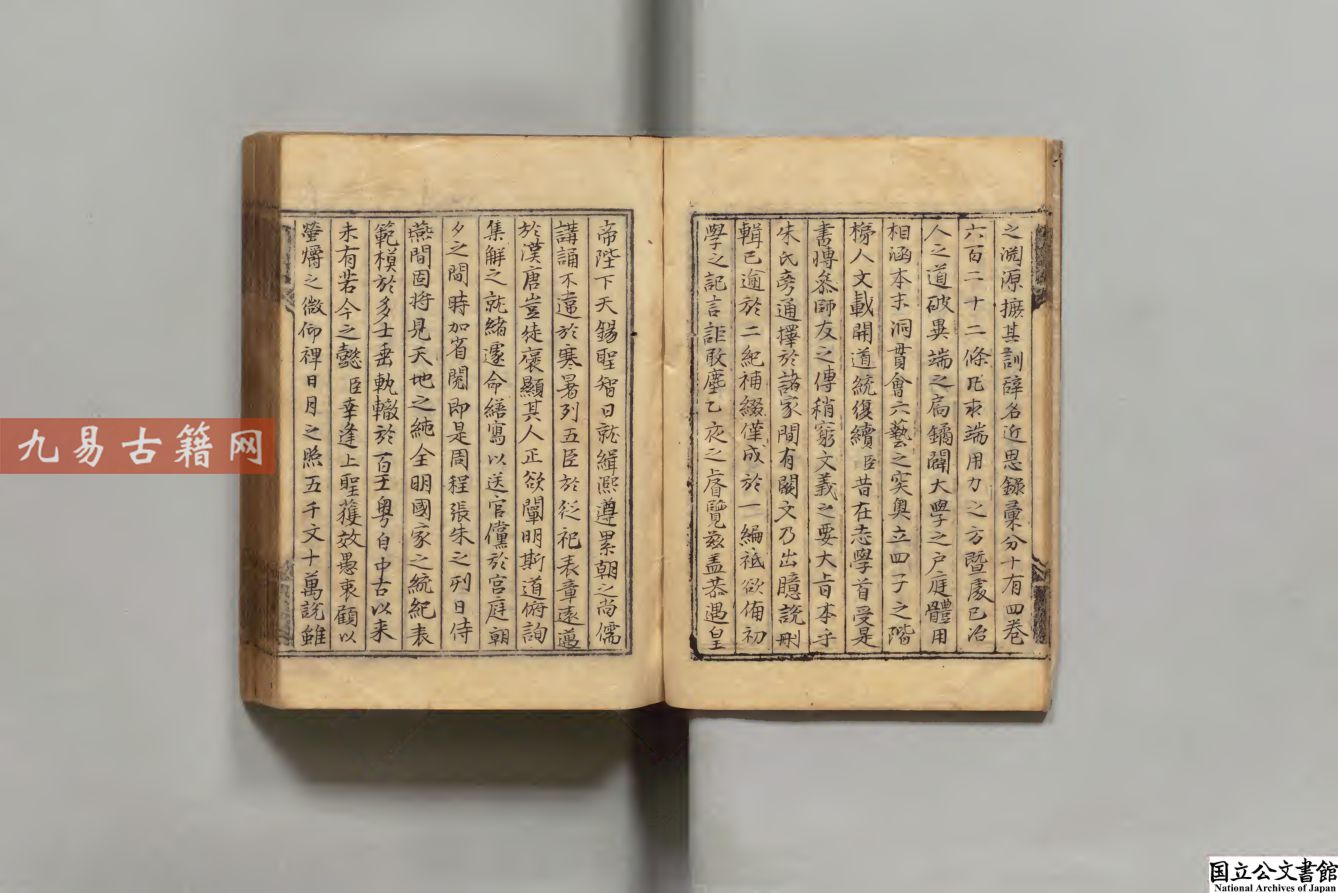 之淵源摭其訓辭名近思錄彙分十有四卷
六百二十二條凡求端用力之方曁處己治
人之道破異端之扃鐍闢大學之戶庭體用
相涵本末洞貫會六藝之突奧立四子之階
梯人文載開道統復續臣昔在志學首受是
書博叅師友之傳稍窮文義之要大旨本乎
朱氏旁通擇於諸家間有闕文乃出臆說刪
輯已逾於二紀補綴僅成於一編祗欲備初
學之記言詎敢塵乙夜之睿覽玆盖恭遇皇
帝陛下天錫聖智日就緝熙遵累朝之尚儒
講誦不違於寒暑列五臣於從祀表章遠邁
於漢唐豈徒褒顯其人正欲闡明斯道俯詢
集解之就緒遽命繕寫以送官儻於宮庭朝
夕之間時加省閱即是周程張朱之列日侍
燕間固將見天地之純全明國家之統紀表
範模於多士垂軌轍於百王粤自中古以来
未有若今之懿臣幸逢上聖獲效愚衷顧以
螢爝之微仰裨日月之照五千文十萬說雖
九易古籍网
国立公文書館
National Archives of Japan